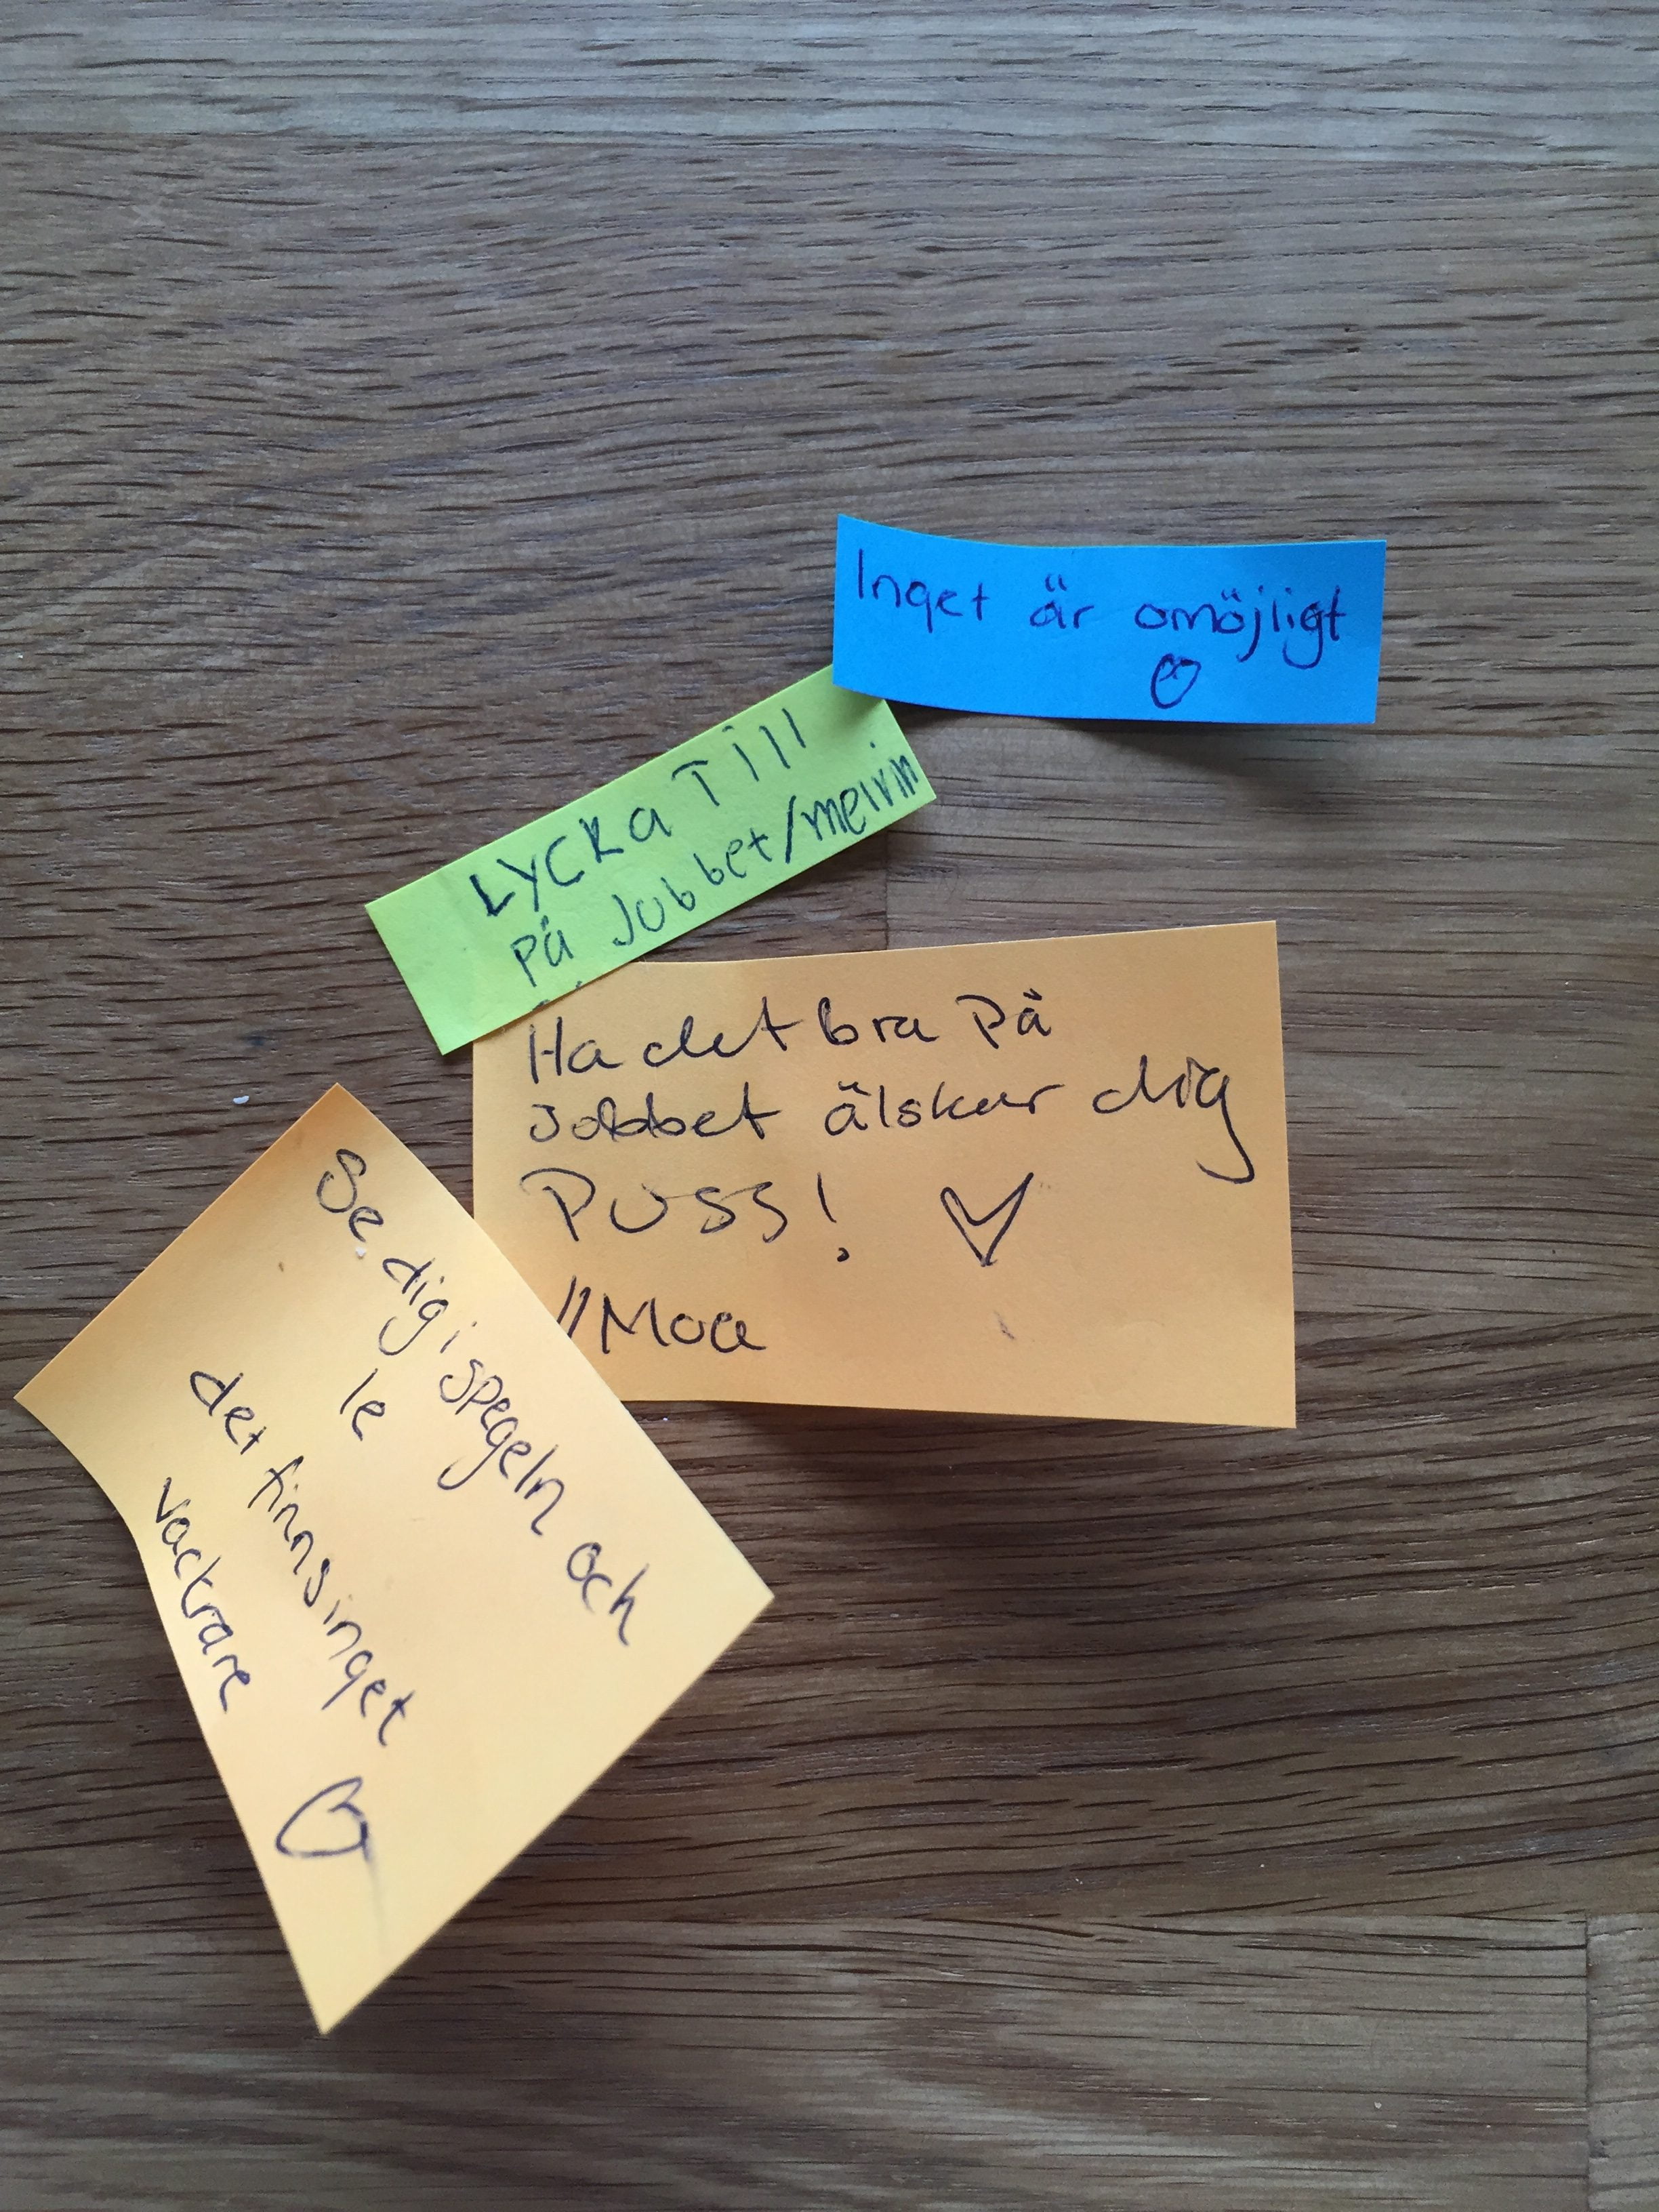 Inget är omöjligt
LYCKA Till
på Jobbet/melvin
Ha det bra på
Jobbet älskar dig
PUSS!
//Moa
Se dig i spegeln och
le
det finns inget
vackrare